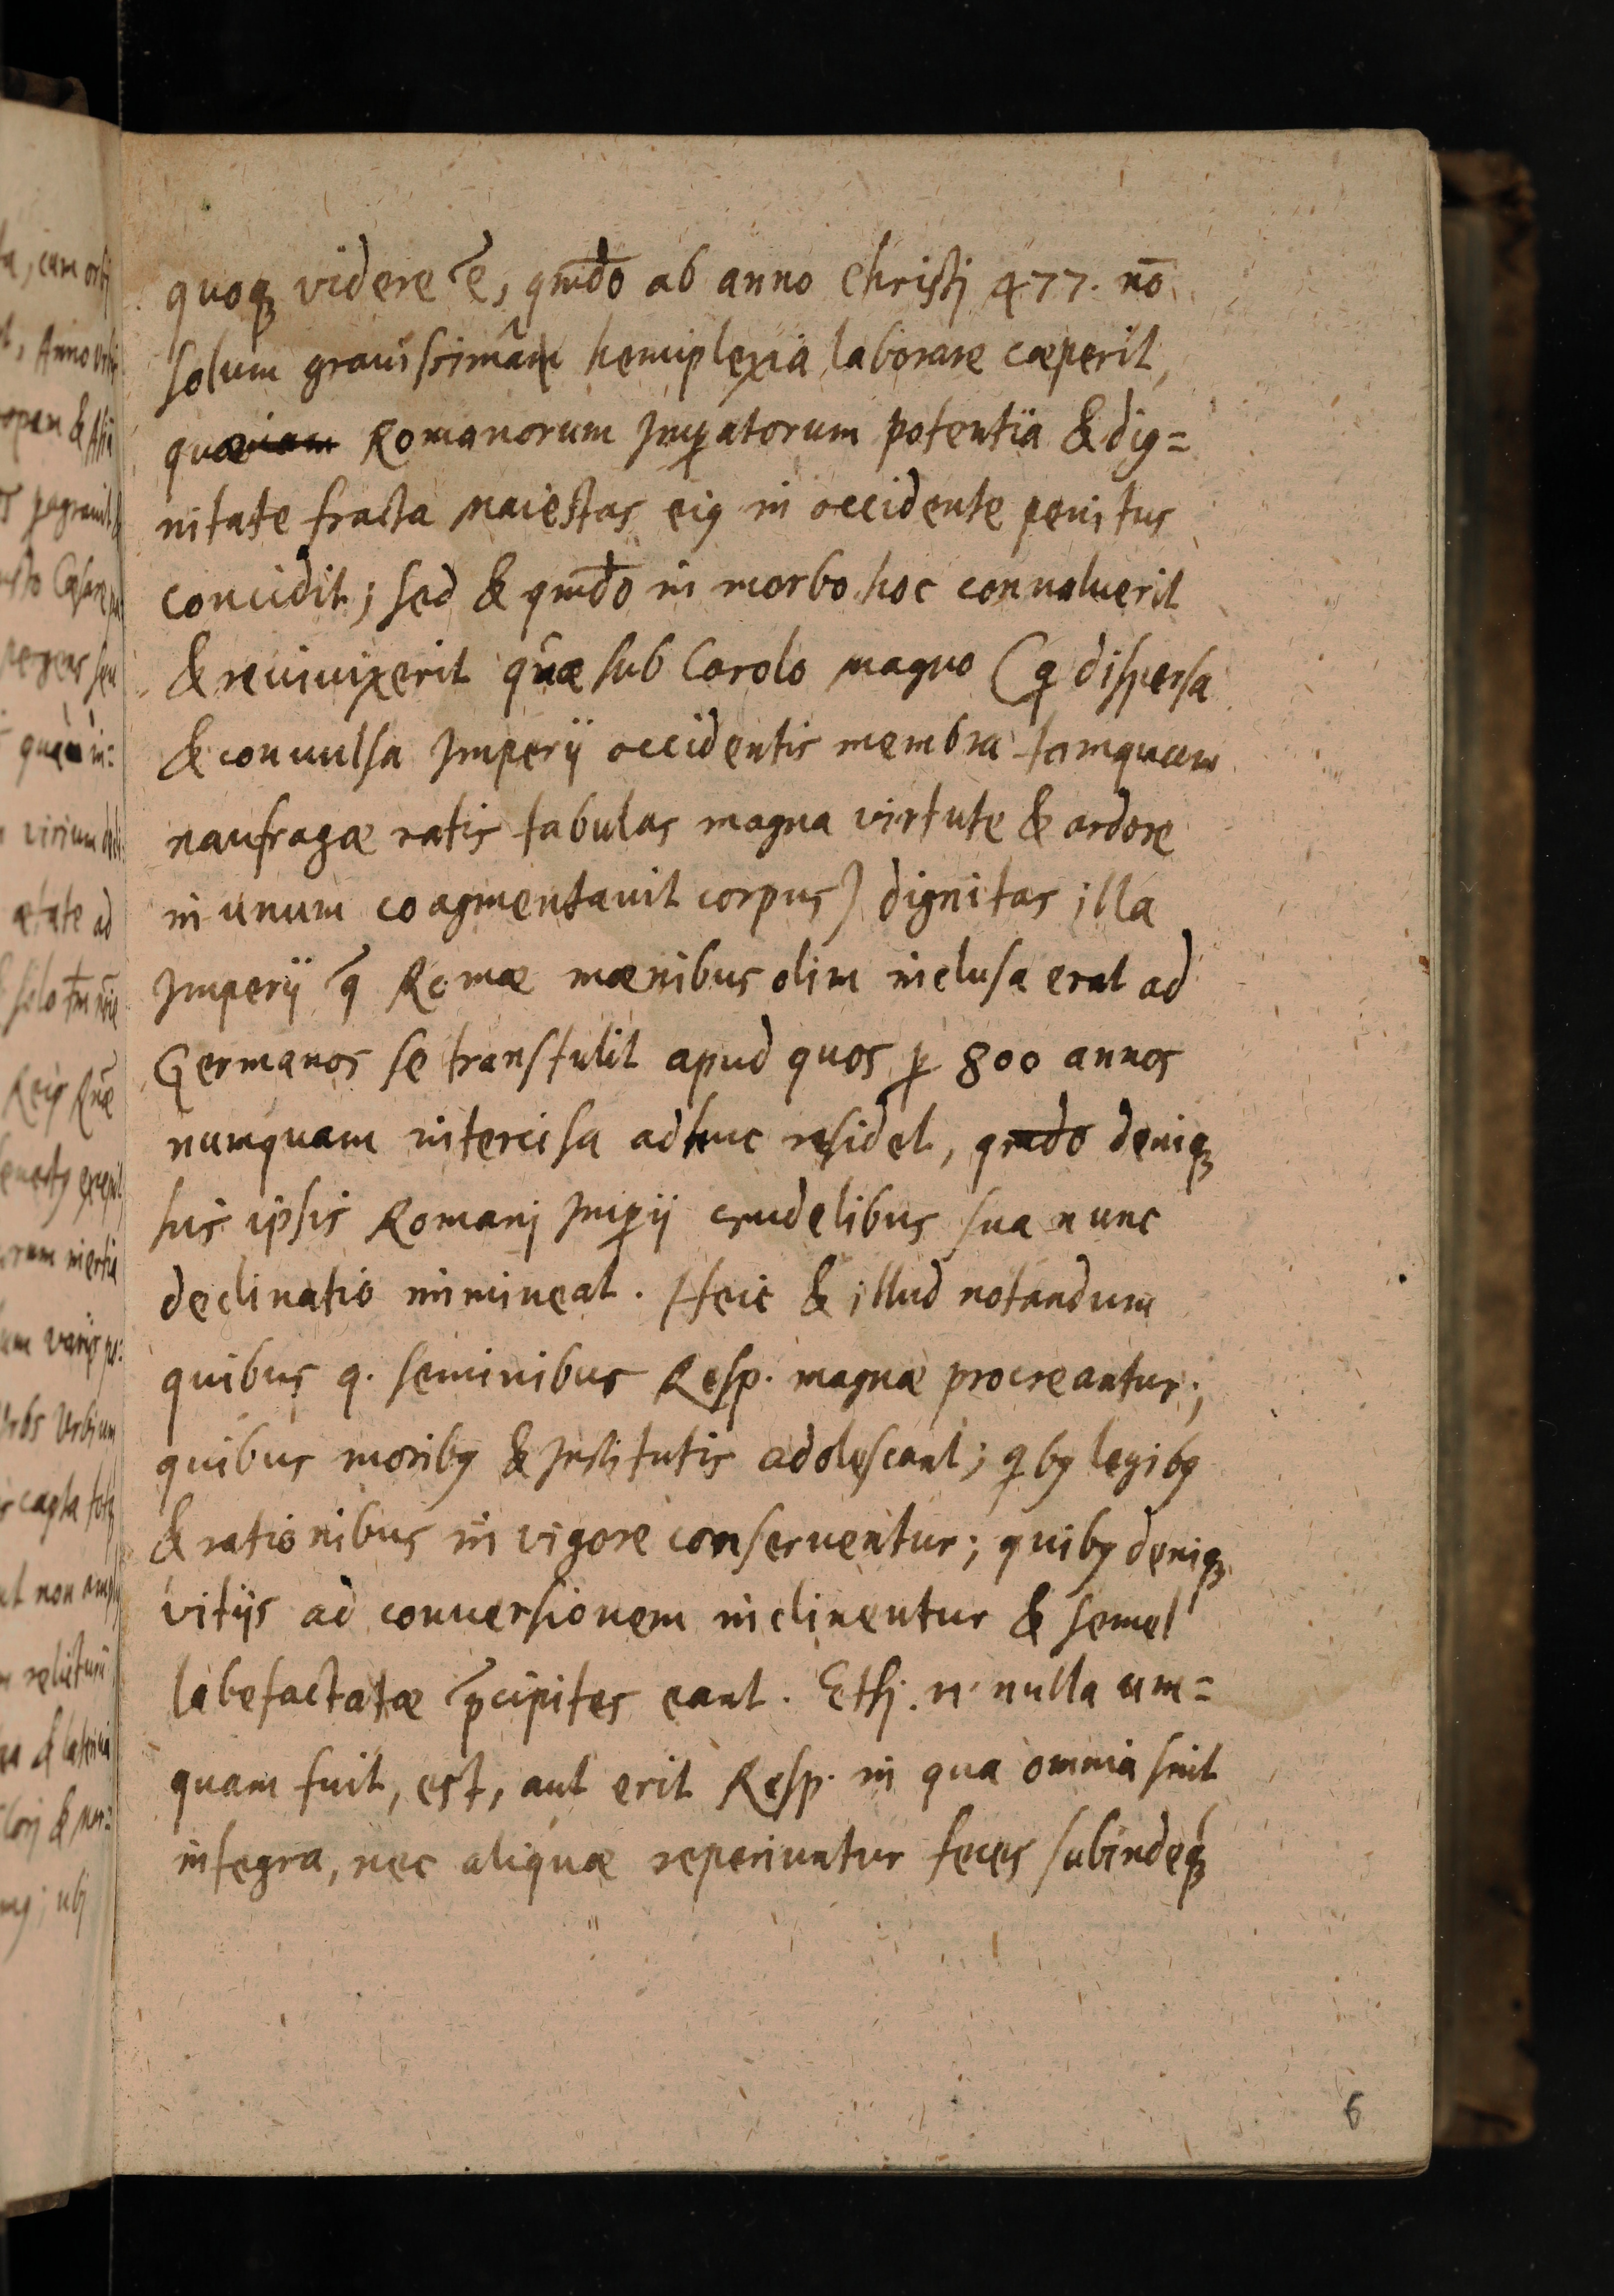 quoq; videre ẽ, qm̄do ab anno Christj 477. nō
solum grauissimâ hemiplexia laborare cæperit,
qua Romanorum Imꝑatorum potentia & dig=
nitate fracta maiestas eiꝰ in occidente penitus
concidit; sed & qm̄do in morbo hoc conualuerit
& reuiuixerit quæ sub Carolo magno (q dispersa
& conuulsa Imperij occidentis membra tamquam
naufragæ ratis tabulas magna virtute & ardore
in unum coagmentauit corpus) dignitas illa
Imperij q̃ Romæ mænibus olim inclusa erat ad
Germanos se transtulit apud quos ꝑ 800 annos
numquam intercisa adhuc residet, qmdo deniq;
suis ipsis Romanj Imꝑij crudelibus sua nunc
declinatio immineat. Heic & illud notandum
quibus q. seminibus Resp. magnæ procreantur;
quibus moribꝰ & Institutis adolescant; qbꝰ legibꝰ
& rationibus in vigore conseruentur; quibꝰ deniq;
vitijs ad conuersionem inclinentur & semel
labefactatæ p̃cipites eant. Etsj. n. nulla um=
quam fuit, est, aut erit Resp. in qua omnia sint
integra, nec aliquæ reperiuntur feces subindeq;
6